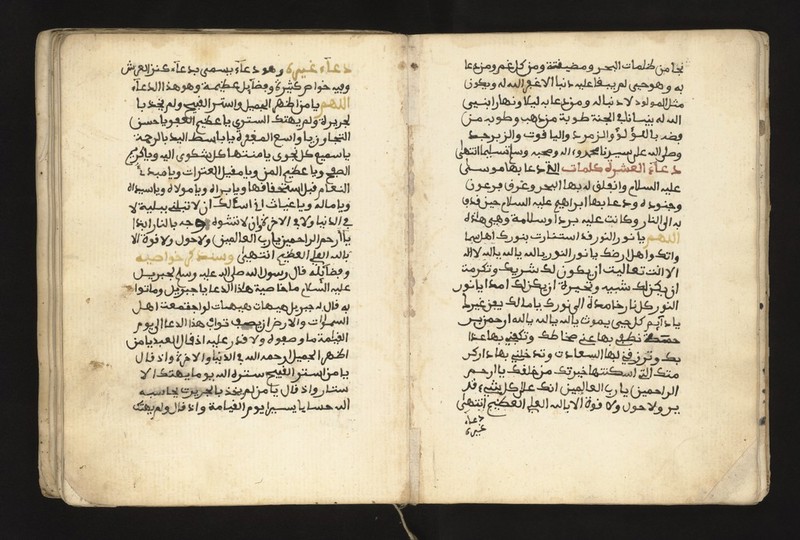 نجا من ظلمات البحر ومضيقة ومن كل غم ومن دعا
به وهو حبى لم يبق عليه ذنبا الا غفر الله له ويكون
مثل المولود لا ذنب له ومن دعا به ليلا ونهارا بنى
الله له بنيانا في الجنة طوبة من ذهب وطوبة من
فضة باللؤلؤ والزمرد والياقوت والزبرجد
وصلى الله على سيدنا محمد وءاله وصحبه وسلم تسليما انتهى
دعاء العشرة كلمات الذي دعا بها موسى
عليه السلام وانفلق له بها البحر وغرق فرعون
وجنوده ودعا بها ابراهيم عليه السلام حين قذف
به الى النار وكانت عليه بردا وسلامة وهي هاذه
اللهم يا نور النور قد استنارت بنورك اهل سما
واتك واهل ارضك يا نور النور يالله يالله يالله لا اله
الا انت تعاليت ان يكون لك شريك وتكرمت
ان يكون لك شبيه وتجبرت ان يكون لك امدا يا نور
النور كل نار خامدة الى نورك يا مالك يفنى غيره
يا دايم كل حي يموت يالله يالله يالله ارحمني بر
حمتك نطفى بها عني سخطك وتكفني بها عذا
بك وترزقني بها السعادت وتدخلني بها دارك
متك التي اسكنتها خيرتك من خلفك يا ارحم
الراحمين يا رب العالمين انك على كل شيء قد
ير ولا حول ولا قوة الا بالله العلي العظيم انتهى
دعاء
غيره
دعاء غيره وهو دعاء يسمى بدعاء كنز العرش
وفيه خواص كثيرة وفضايل عظيمة وهو هذا الدعاء
اللهم يا من اظهر الجميل واستر القبيح ولم يخذ با
لجريرة ولم يهتك الستر يا عظيم العفو يا حسن
التجاوز يا واسع المغفرة يا باسط اليد بالرحمة
يا سميع كل نجوى يا منتها كل شكوى اليه ويا كريم
الصفح ويا عظيم المن ويا مقيل العثرات ويا مبدئ
النعام قبل استحقاقها ويا براه ويا مولاه ويا سيداه
ويا ماله ويا غياث اراسئالك ان لا تبلني ببلية لا
في الدنيا ولا في الاخرة وان لا تشوه وجه بالنار ابدا
يا ارحم الراحمين يا رب العالمين ولا حول ولا قوة الا
بالله العلي العظيم انتهى وسنذكر خواصه
وفضايله قال رسول الله صلى الله عليه وسلم لجبريل
عليه السلام ما خاصية هذا الدعا يا جبريل وما ثوا
به قال له جبريل هيهات هيهات لو اجتمعت اهل
السموات والارض ان يصفوا ثواب هذا الدعا الى يوم
القيامة ما وصفوه ولا قدر عليه اذ قال العبد يا من
اظهر الجميل رحمه الله في الدنيا والاخرة واذ قال
يا من استر القبيح ستره الله يوما يهتك الا
ستار واذ قال يا من لم يخذ بالجريرت يحاسبه
الله حسابا يسيرا يوم القيامة واذ قال ولم يهتك